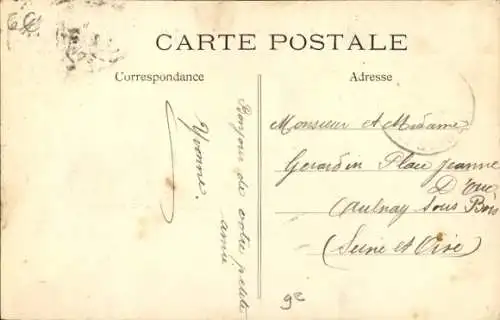 CARTE POSTALE
Correspondance
Adresse
Bonjour de votre petite
amie
Yvonne.
Monsieur et Madame
Gerardin Place Jeanne
D'
(Aulnay sous Bois
(Seine et Oise)
9e